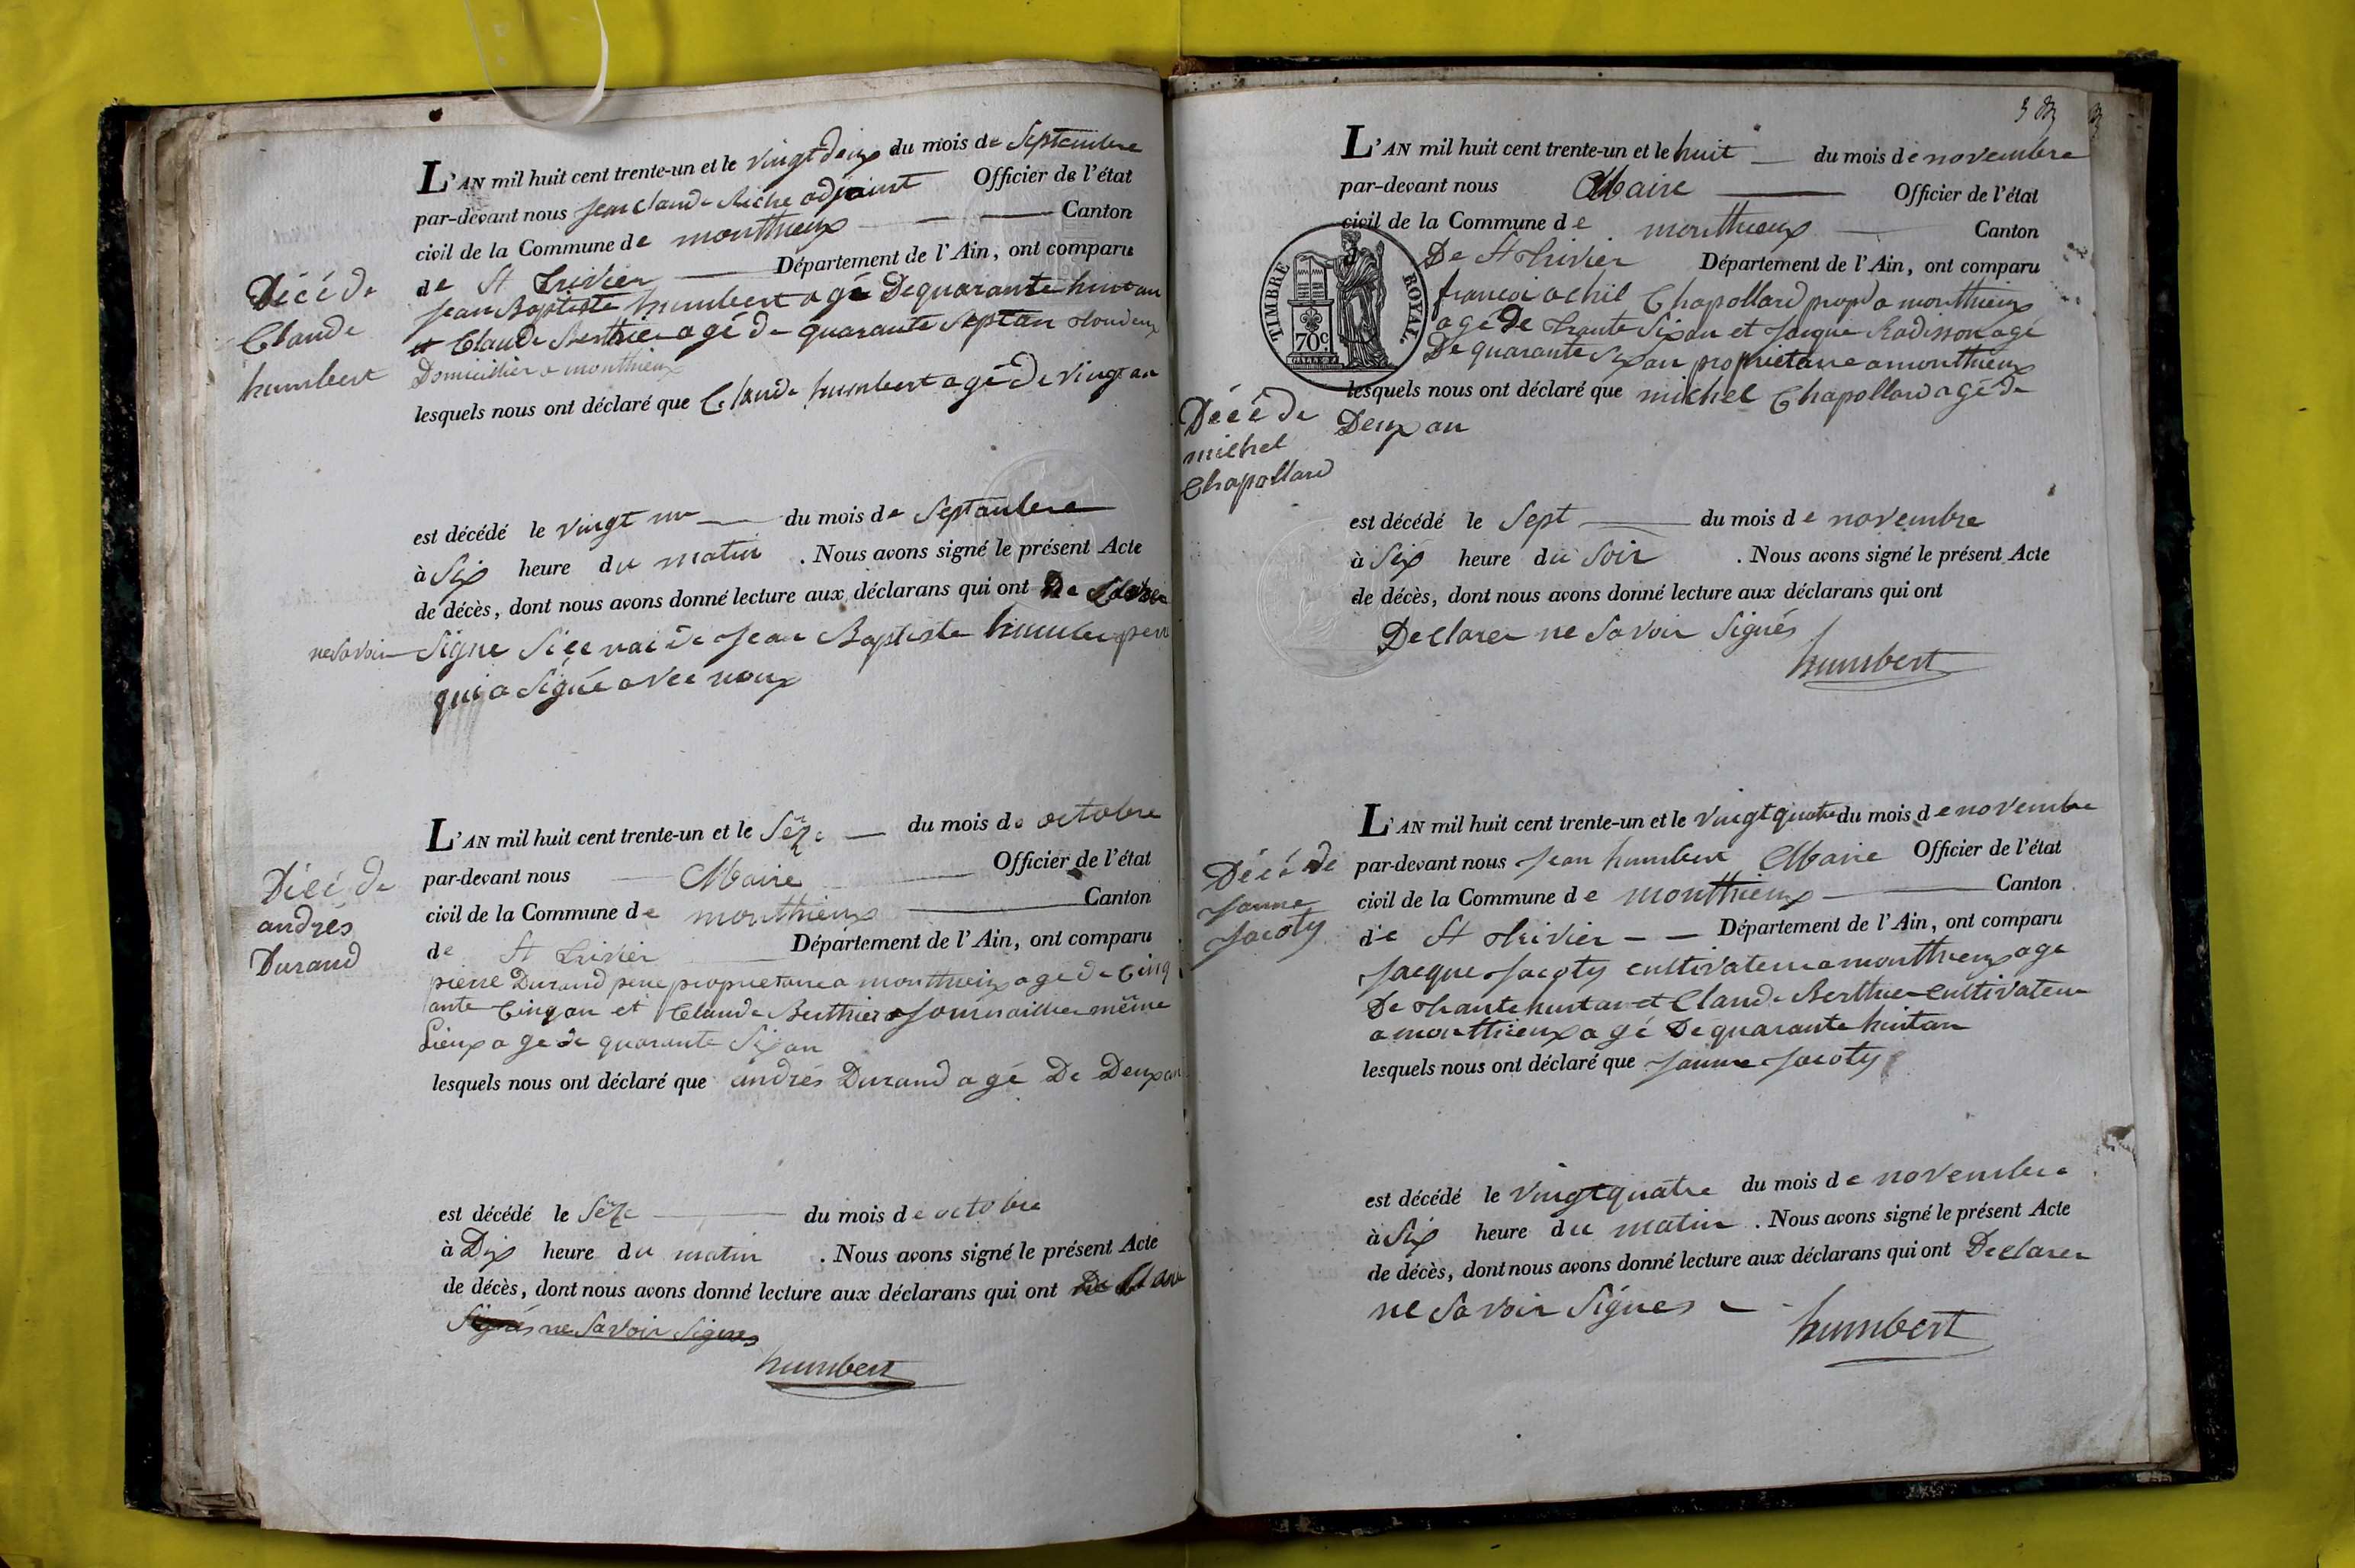 L'AN mil huit cent trente-un et le vingt deux du mois de Septembre
par-devant nous Jean claude Riche adjoint Officier de l'état
civil de la Commune de monthieux Canton
de St Trivier Département de l'Ain, ont comparu
Jean Baptiste humbert agé De quarante huit an
et Claude Berthier agé de quarante Sept an
Domicillier a monthieux
lesquels nous ont déclaré que Claude humbert agé de vingt an
Décé de
Claude
humbert
est décédé le vingt un du mois de Septanbre
à Six heure du matin . Nous avons signé le présent Acte
de décès, dont nous avons donné lecture aux déclarans qui ont De
ne savoir Signe Si ce nai de Jean Baptiste humber pere
qui a Signé avec noux
L'AN mil huit cent trente-un et le Sêze du mois de octobre
par-devant nous Maire Officier de l'état
civil de la Commune de monthieux Canton
de St Trivier Département de l'Ain, ont comparu
pierre Durand pere proprietaire a monthieux age de Cinq
ante Cinq an et Claude Berthier Journaillier même
Lieux age de quarante Six an
lesquels nous ont déclaré que andrés Durand agé De Deux an
Décé de
andrés
Durand
est décédé le Sêze du mois de octobre
à Dix heure du matin . Nous avons signé le présent Acte
de décès, dont nous avons donné lecture aux déclarans qui ont De Clare
Signés ne Savoir Signes
humbert
L'AN mil huit cent trente-un et le huit du mois de novembre
par-devant nous Maire Officier de l'état
civil de la Commune de monthieux Canton
De St Trivier Département de l'Ain, ont comparu
TIMBRE ROYAL
70c.
francoi achil Chapollard propr a monthieux
agé de trante Six an et Jacque Radisson agé
De quarante Six an proprietaire a monthieux
lesquels nous ont déclaré que michel Chapollard agé de
Deux an
Décé de
michel
Chapollard
est décédé le Sept du mois de novembre
à Six heure du Soir . Nous avons signé le présent Acte
de décès, dont nous avons donné lecture aux déclarans qui ont
Declarer ne Savoir Signés
humbert
L'AN mil huit cent trente-un et le vingt quatre du mois de novembre
par-devant nous Jean humbert Maire Officier de l'état
civil de la Commune de monthieux Canton
de St Trivier Département de l'Ain, ont comparu
Jacque Jacoty cultivateur a monthieux age
De trante huit an et Claude Berthier Cultivateur
a monthieux agé De quarante huit an
lesquels nous ont déclaré que Janne Jacoty
Décé de
Janne
Jacoty
est décédé le vingt quatre du mois de novembre
à Six heure du matin . Nous avons signé le présent Acte
de décès, dont nous avons donné lecture aux déclarans qui ont Declarer
ne Savoir Signes
humbert